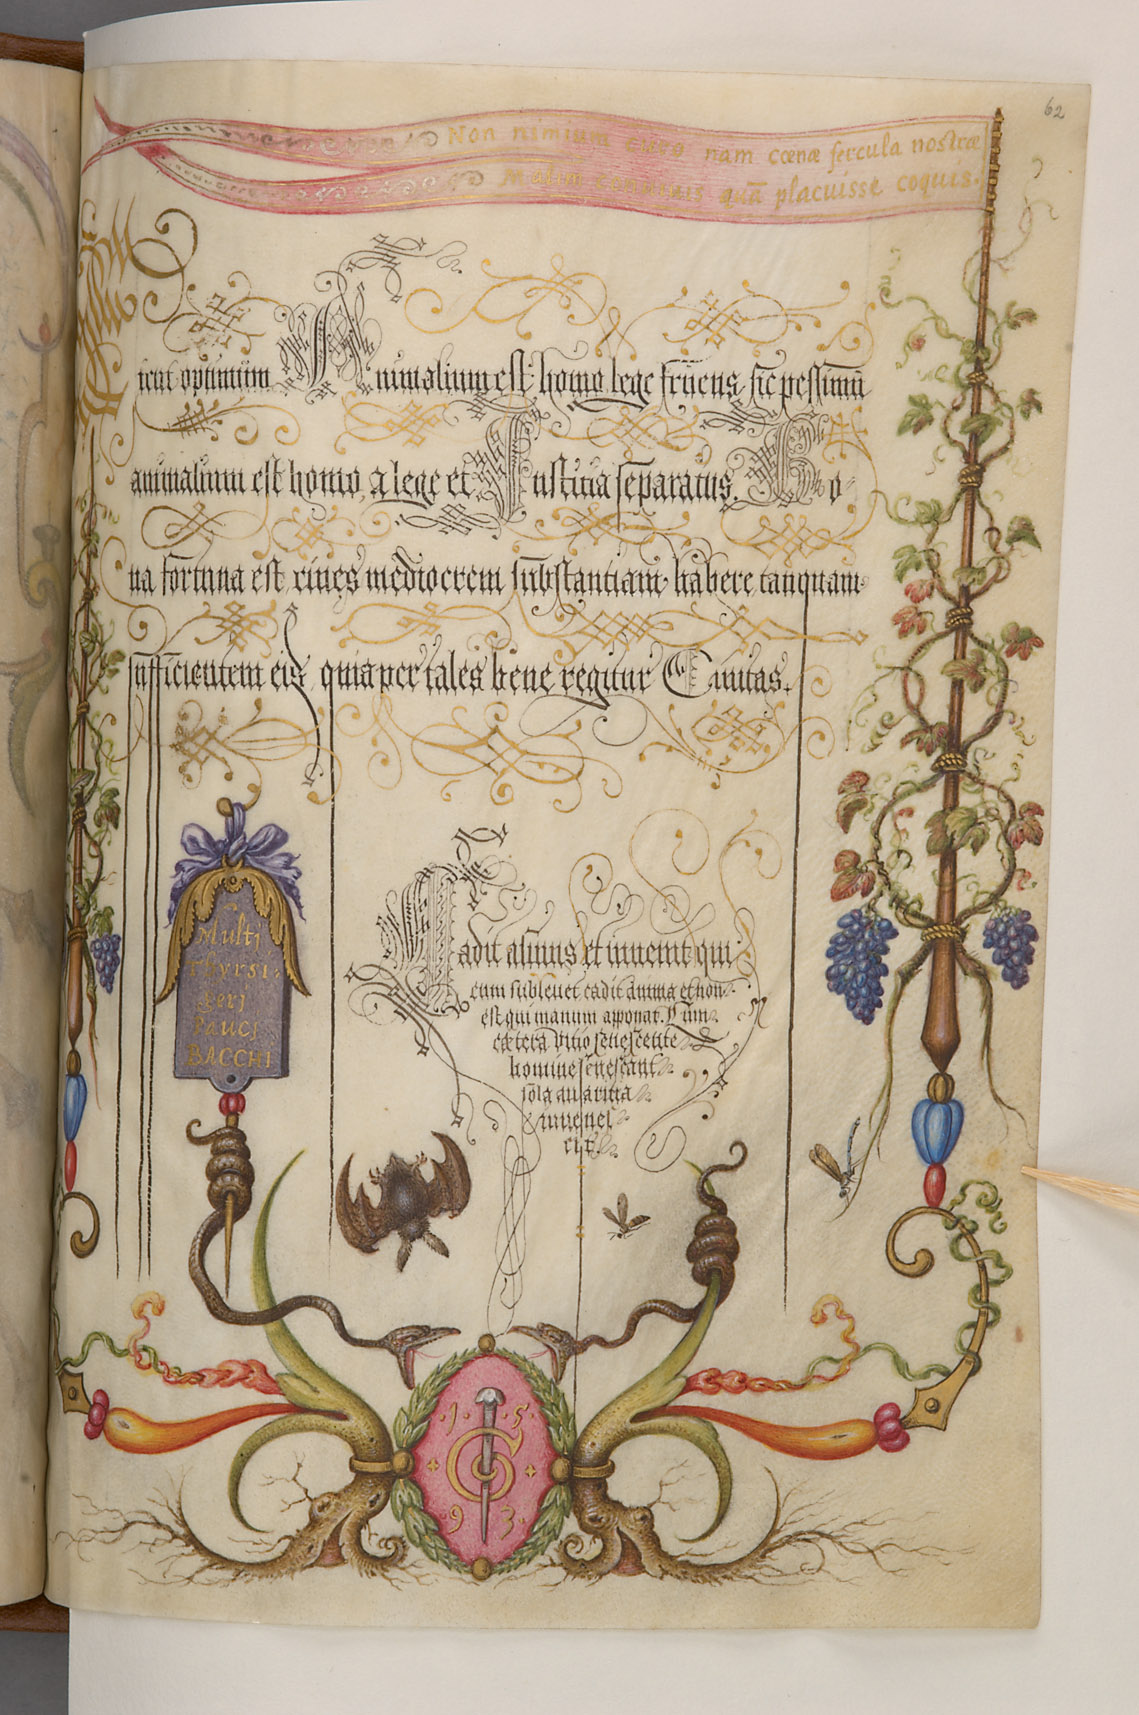 62
Non nimium curo nam cœnæ fercula nostræ
Malim conviviis quā placuisse coquis.
icut optimum Animalium est homo lege fruens, sic pessimū
animalium est homo, a lege et Iustitia separatus. Bo-
na fortuna est cives mediocrem substantiam habere tanquam
sufficientem eis, quia per tales bene regitur Civitas.
Multi
Thyrsi-
geri
Pauci
BACCHI
Cadit asinus et invenit qui
eum sublevet cadit anima et non
est qui manum apponat. Cum
cætera vitio senescente
homine senescant
sola avaritia
iuvenes
cit.
1 5
G
9 3